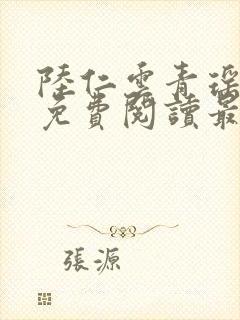 陸仁雲青瑶
免費閱讀最
張源